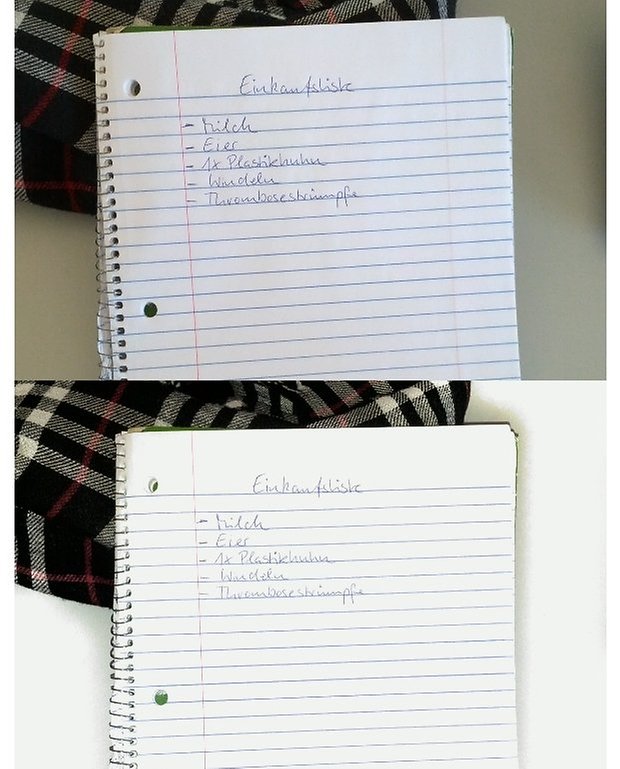 Einkaufsliste
- Milch
- Eier
- 1x Plastikhuhn
- Windeln
- Thrombosestrümpfe
Einkaufsliste
- Milch
- Eier
- 1x Plastikhuhn
- Windeln
- Thrombosestrümpfe